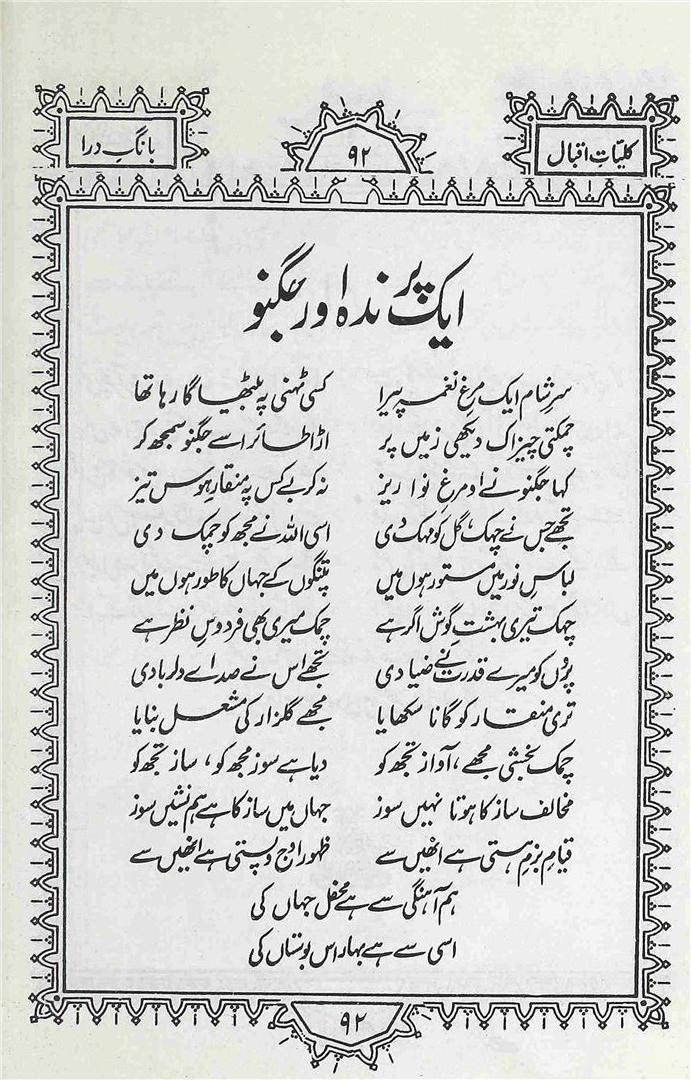 کلیاتِ اقبال
۹۲
بانگِ درا
ایک پرندہ اور جگنو
سرِ شام ایک مرغِ نغمہ پیرا کسی ٹہنی پہ بیٹھا گا رہا تھا
چمکتی چیز اک دیکھی زمیں پر اڑا طائر اسے جگنو سمجھ کر
کہا جگنو نے او مرغِ نوا ریز نہ کر بے کس پہ منقارِ ہوس تیز
تجھے جس نے چہک، گل کو مہک دی اسی اللہ نے مجھ کو چمک دی
لباسِ نور میں مستور ہوں میں پتنگوں کے جہاں کا طور ہوں میں
چہک تیری بہشتِ گوش اگر ہے چمک میری بھی فردوسِ نظر ہے
پروں کو میرے قدرت نے ضیا دی تجھے اس نے صداے دل ربا دی
تری منقار کو گانا سکھایا مجھے گلزار کی مشعل بنایا
چمک بخشی مجھے، آواز تجھ کو دیا ہے سوز مجھ کو، ساز تجھ کو
مخالف ساز کا ہوتا نہیں سوز جہاں میں ساز کا ہے ہم نشیں سوز
قیامِ بزمِ ہستی ہے انھیں سے ظہورِ اوج و پستی ہے انھیں سے
ہم آہنگی سے ہے محفل جہاں کی
اسی سے ہے بہار اس بوستاں کی
۹۲